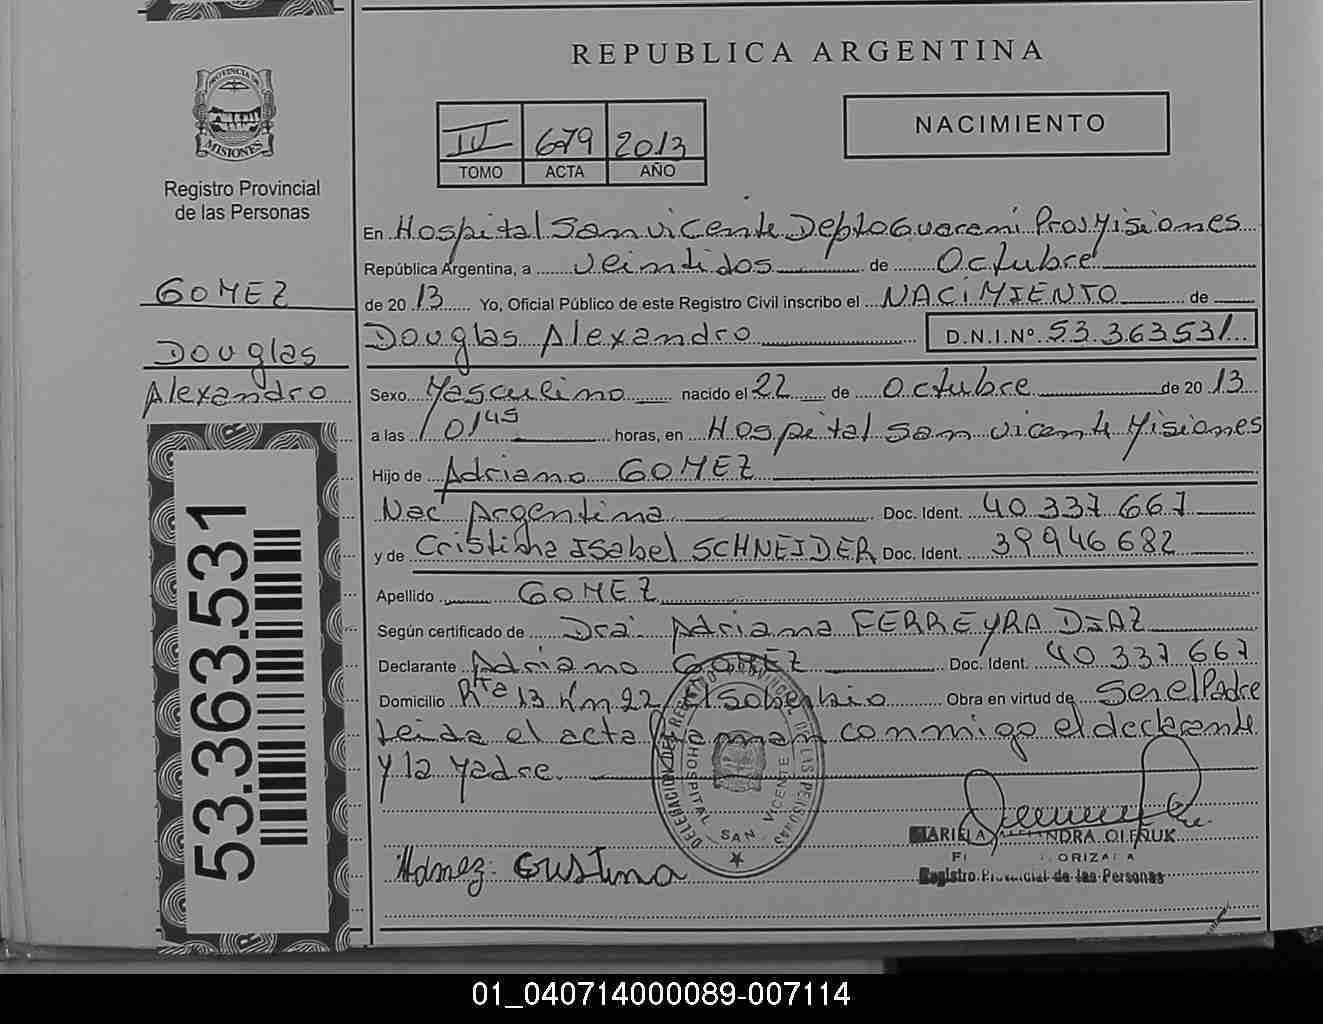 REPUBLICA ARGENTINA
PROVINCIA DE
MISIONES
Registro Provincial
de las Personas
IV 679 2013
TOMO ACTA AÑO
NACIMIENTO
GOMEZ
Douglas
Alexandro
53.363.531
En Hospital San vicente Depto Guarani Prov Misiones
República Argentina, a veintidos de Octubre
de 2013 Yo, Oficial Público de este Registro Civil inscribo el NACIMIENTO de
Douglas Alexandro D.N.I.Nº 53.363531
Sexo Masculino nacido el 22 de Octubre de 2013
a las 10,45 horas, en Hospital San vicente Misiones
Hijo de Adriano GOMEZ
Nac Argentina Doc. Ident. 40 337 667
y de Cristina Isabel SCHNEIDER Doc. Ident. 39946682
Apellido GOMEZ
Según certificado de Dra. Adriana FERREYRA DIAZ
Declarante Adriano GOMEZ Doc. Ident. 40 337 667
Domicilio Rta 13 Km 22 El Soberbio Obra en virtud de Ser el Padre
Leida el acta firman conmigo el declarante
y la Madre.
DELEGACION DEL REGISTRO PROVINCIAL DE LAS PERSONAS
HOSPITAL SAN VICENTE
MARIELA OLEÑUK
Registro Provincial de las Personas
01_040714000089-007114